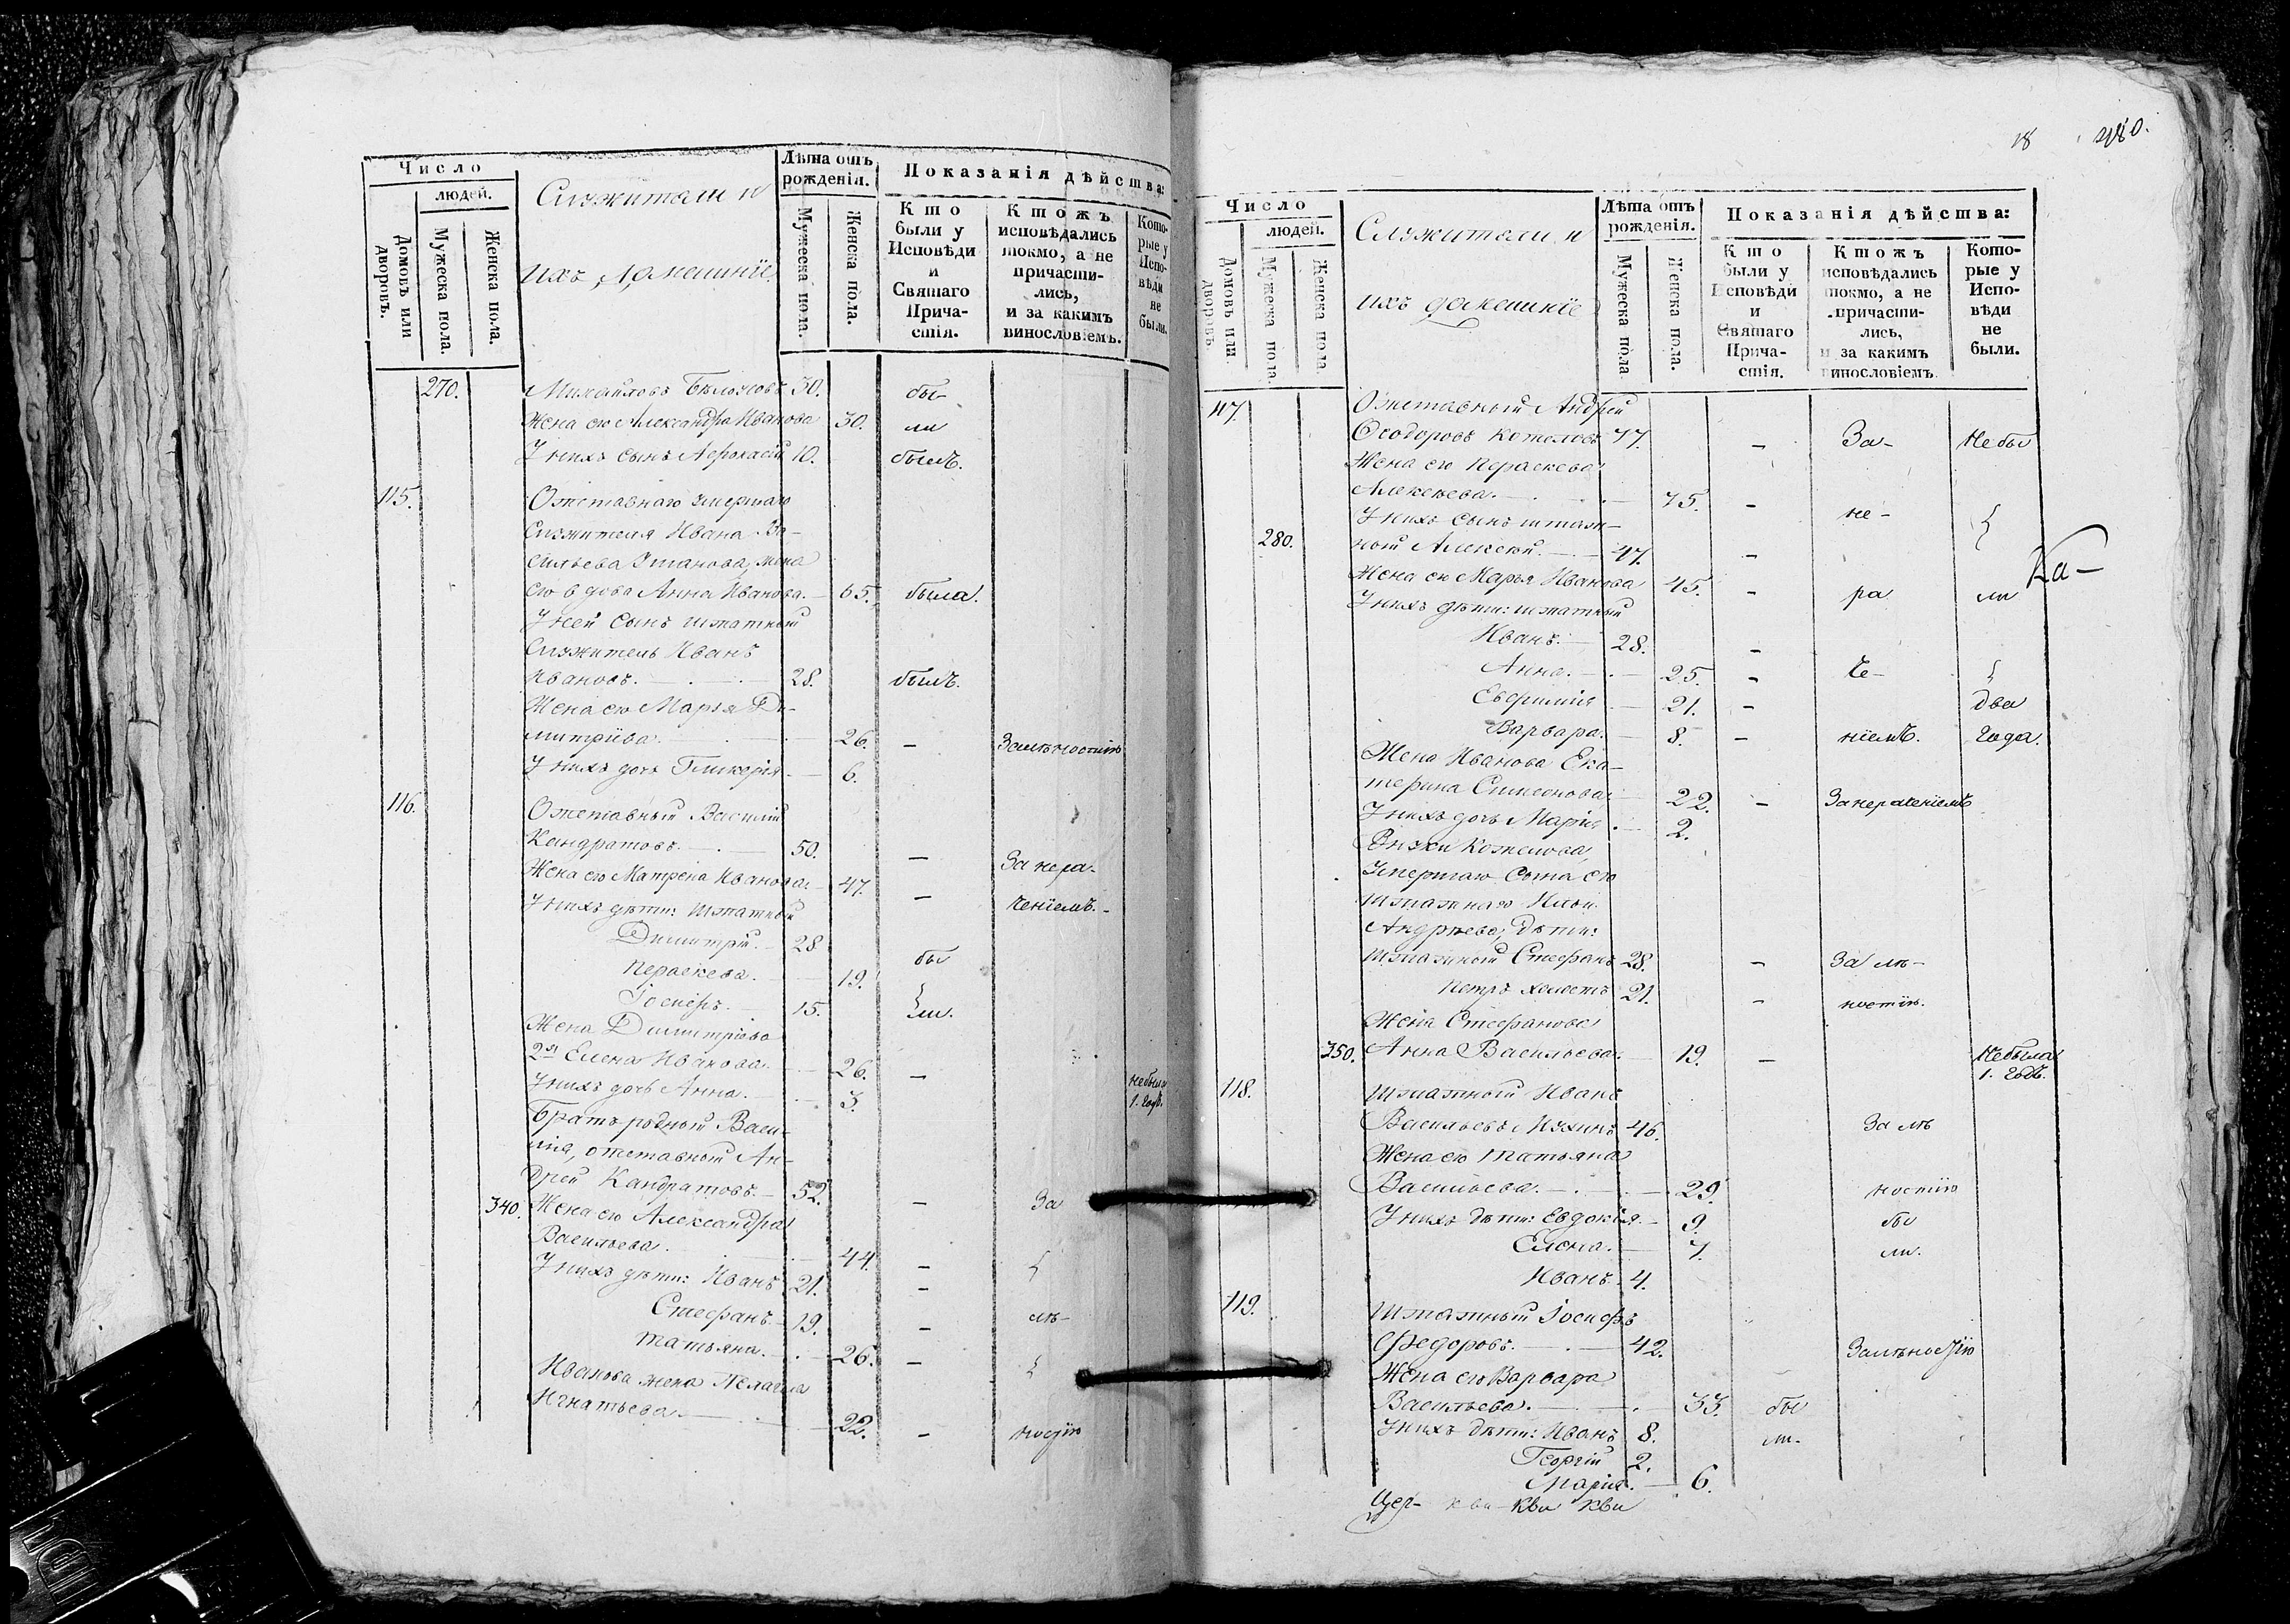 Число
людей.
Домовъ или дворовъ.
Мужеска пола.
Женска пола.
Служители и
ихъ домашнїе
Лѣта отъ рожденія.
Мужеска пола.
Женска пола.
Показанія дѣйства:
Кто были у Исповѣди и Святаго Причастія.
Ктожъ исповѣдались токмо, а не причастились, и за какимъ винословіемъ.
Которые у Исповѣди не были.
270. Михайловъ Бѣляковъ 30. бы-
Жена его Александра Иванова 30. ли
У нихъ сынъ Афонасій 10. былъ.
115. Отставнаго умершаго
Служителя Ивана Ва-
сильева жена
его вдова Анна Иванова. 65. была.
У ней сынъ штатный
Служитель Иванъ
Ивановъ. 28. былъ.
Жена его Марья Ди-
митріева 26. – Залѣностїю
У нихъ дочь Гликерія 6.
116. Отставный Василій
Кандратовъ. 50. – За нера-
Жена его Матрена Иванова 47. – ченїемъ.
У нихъ дѣти: штатный
Димитрій. 28 бы
Параскева. 19.
Іосифъ. 15. ли.
Жена Димитріева
2я Елена Иванова. 26. – не была
У нихъ дочь Анна. 3. 1. годъ.
Братъ родный Васи-
лія, отставный Ан-
дрей Кандратовъ. 52. – За
340. Жена его Александра
Васильева. 44. –
У нихъ дѣти: Иванъ 21. –
Стефанъ. 19. – лѣ-
Татьяна. 26. –
Иванова жена Пелагея
Игнатьева. 22. – ностїю
18 280.
Число
людей.
Домовъ или дворовъ.
Мужеска пола.
Женска пола.
Служители и
ихъ домашнїе
Лѣта отъ рожденія.
Мужеска пола.
Женска пола.
Показанія дѣйства:
Кто были у Исповѣди и Святаго Причастія.
Ктожъ исповѣдались токмо, а не причастились, и за какимъ винословіемъ.
Которые у Исповѣди не были.
117. Отставный Андрей
Феодоровъ Котеловъ 77. – За- Не бы
Жена его Параскева
Алексѣева. 75. – не-
У нихъ сынъ штат-
280. ный Алексѣй. 47. –
Ка-
Жена его Марья Иванова 45. – ра ли
У нихъ дѣти: штатный
Иванъ. 28. –
Анна. 25. – че-
Евфимія 21. – два
Варвара. 8. – нїемъ. года.
Жена Иванова Ека-
терина Симеонова 22. – За нераченїемъ
У нихъ дочь Марія 2.
Внуки Котелова,
Умершаго Сына его
штатнаго Ильи
Андрѣева, дѣти:
Штатный Стефанъ 28. – За лѣ-
Петръ холостъ 21. – ностїю.
Жена Стефанова
350. Анна Васильева 19. – Не была
1. годъ.
118. Штатный Иванъ
Васильевъ Мухинъ 46. За лѣ
Жена его Татьяна
Васильева. 29. ностїю
У нихъ дѣти: Евдокія. 9. бы
Елена. 7. ли.
Иванъ 4.
119. Штатный Іосифъ
Федоровъ. 42. Залѣностїю
Жена его Варвара
Васильева. 33. бы
У нихъ дѣти: Иванъ 8. ли.
Георгій 2.
Марія. 6.
Цер- кви кви